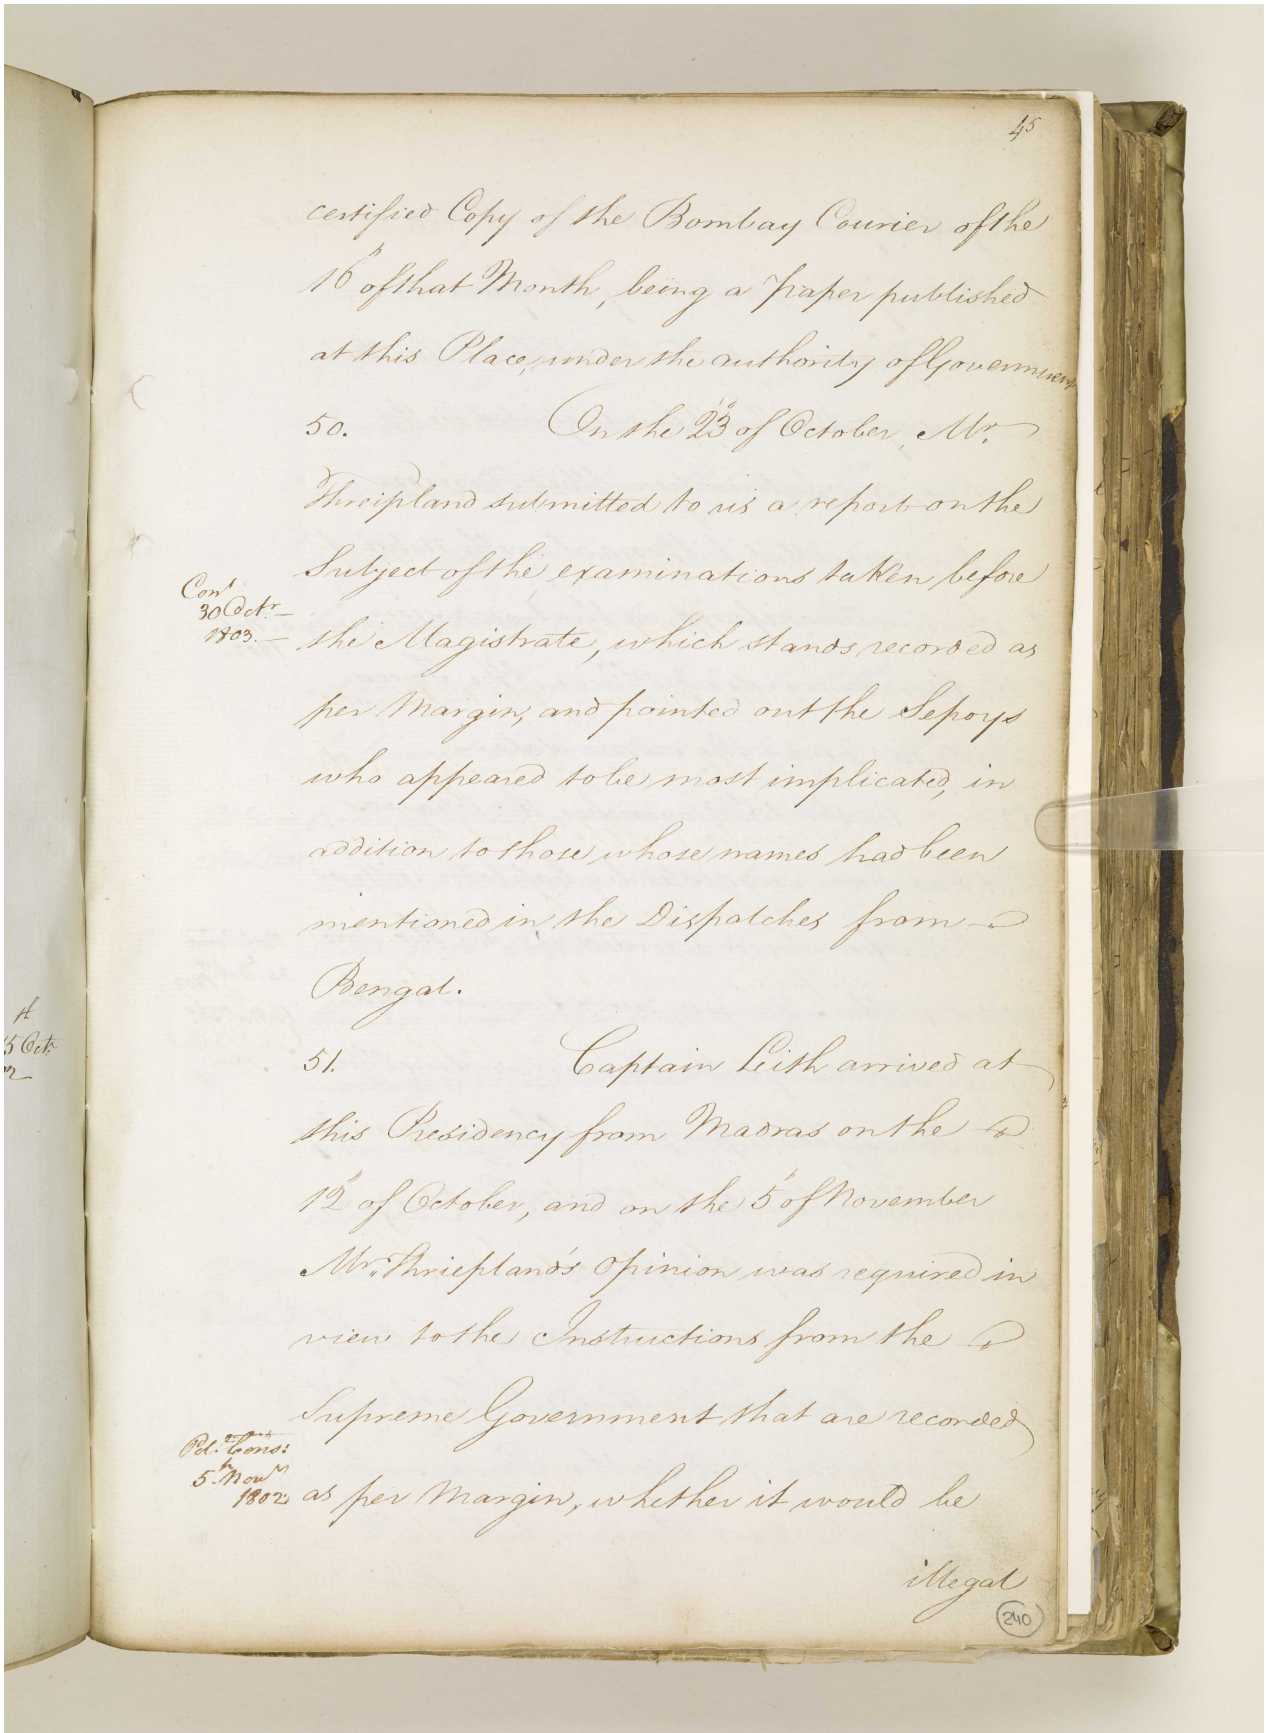 45
certified Copy of the Bombay Courier of the
16" of that Month, being a Paper published
at this Place, under the authority of Government
50. On the 23" of October, Mr.
Threipland submitted to us a report on the
Subject of the examinations taken before
Con.t
30 Octr.
1803.
the Magistrate, which stands recorded as
per Margin, and pointed out the Sepoys
who appeared to be most implicated, in
addition to those whose names had been
mentioned in the Dispatches from
Bengal.
A
15 Octr.
51. Captain Leith arrived at
this Presidency from Madras on the
12" of October, and on the 5" of November
Mr. Thriepland's Opinion was required in
view to the Instructions from the
Supreme Government that are recorded
Pol. Cons:
5th Novr
1802.
as per Margin, whether it would be
illegal
240